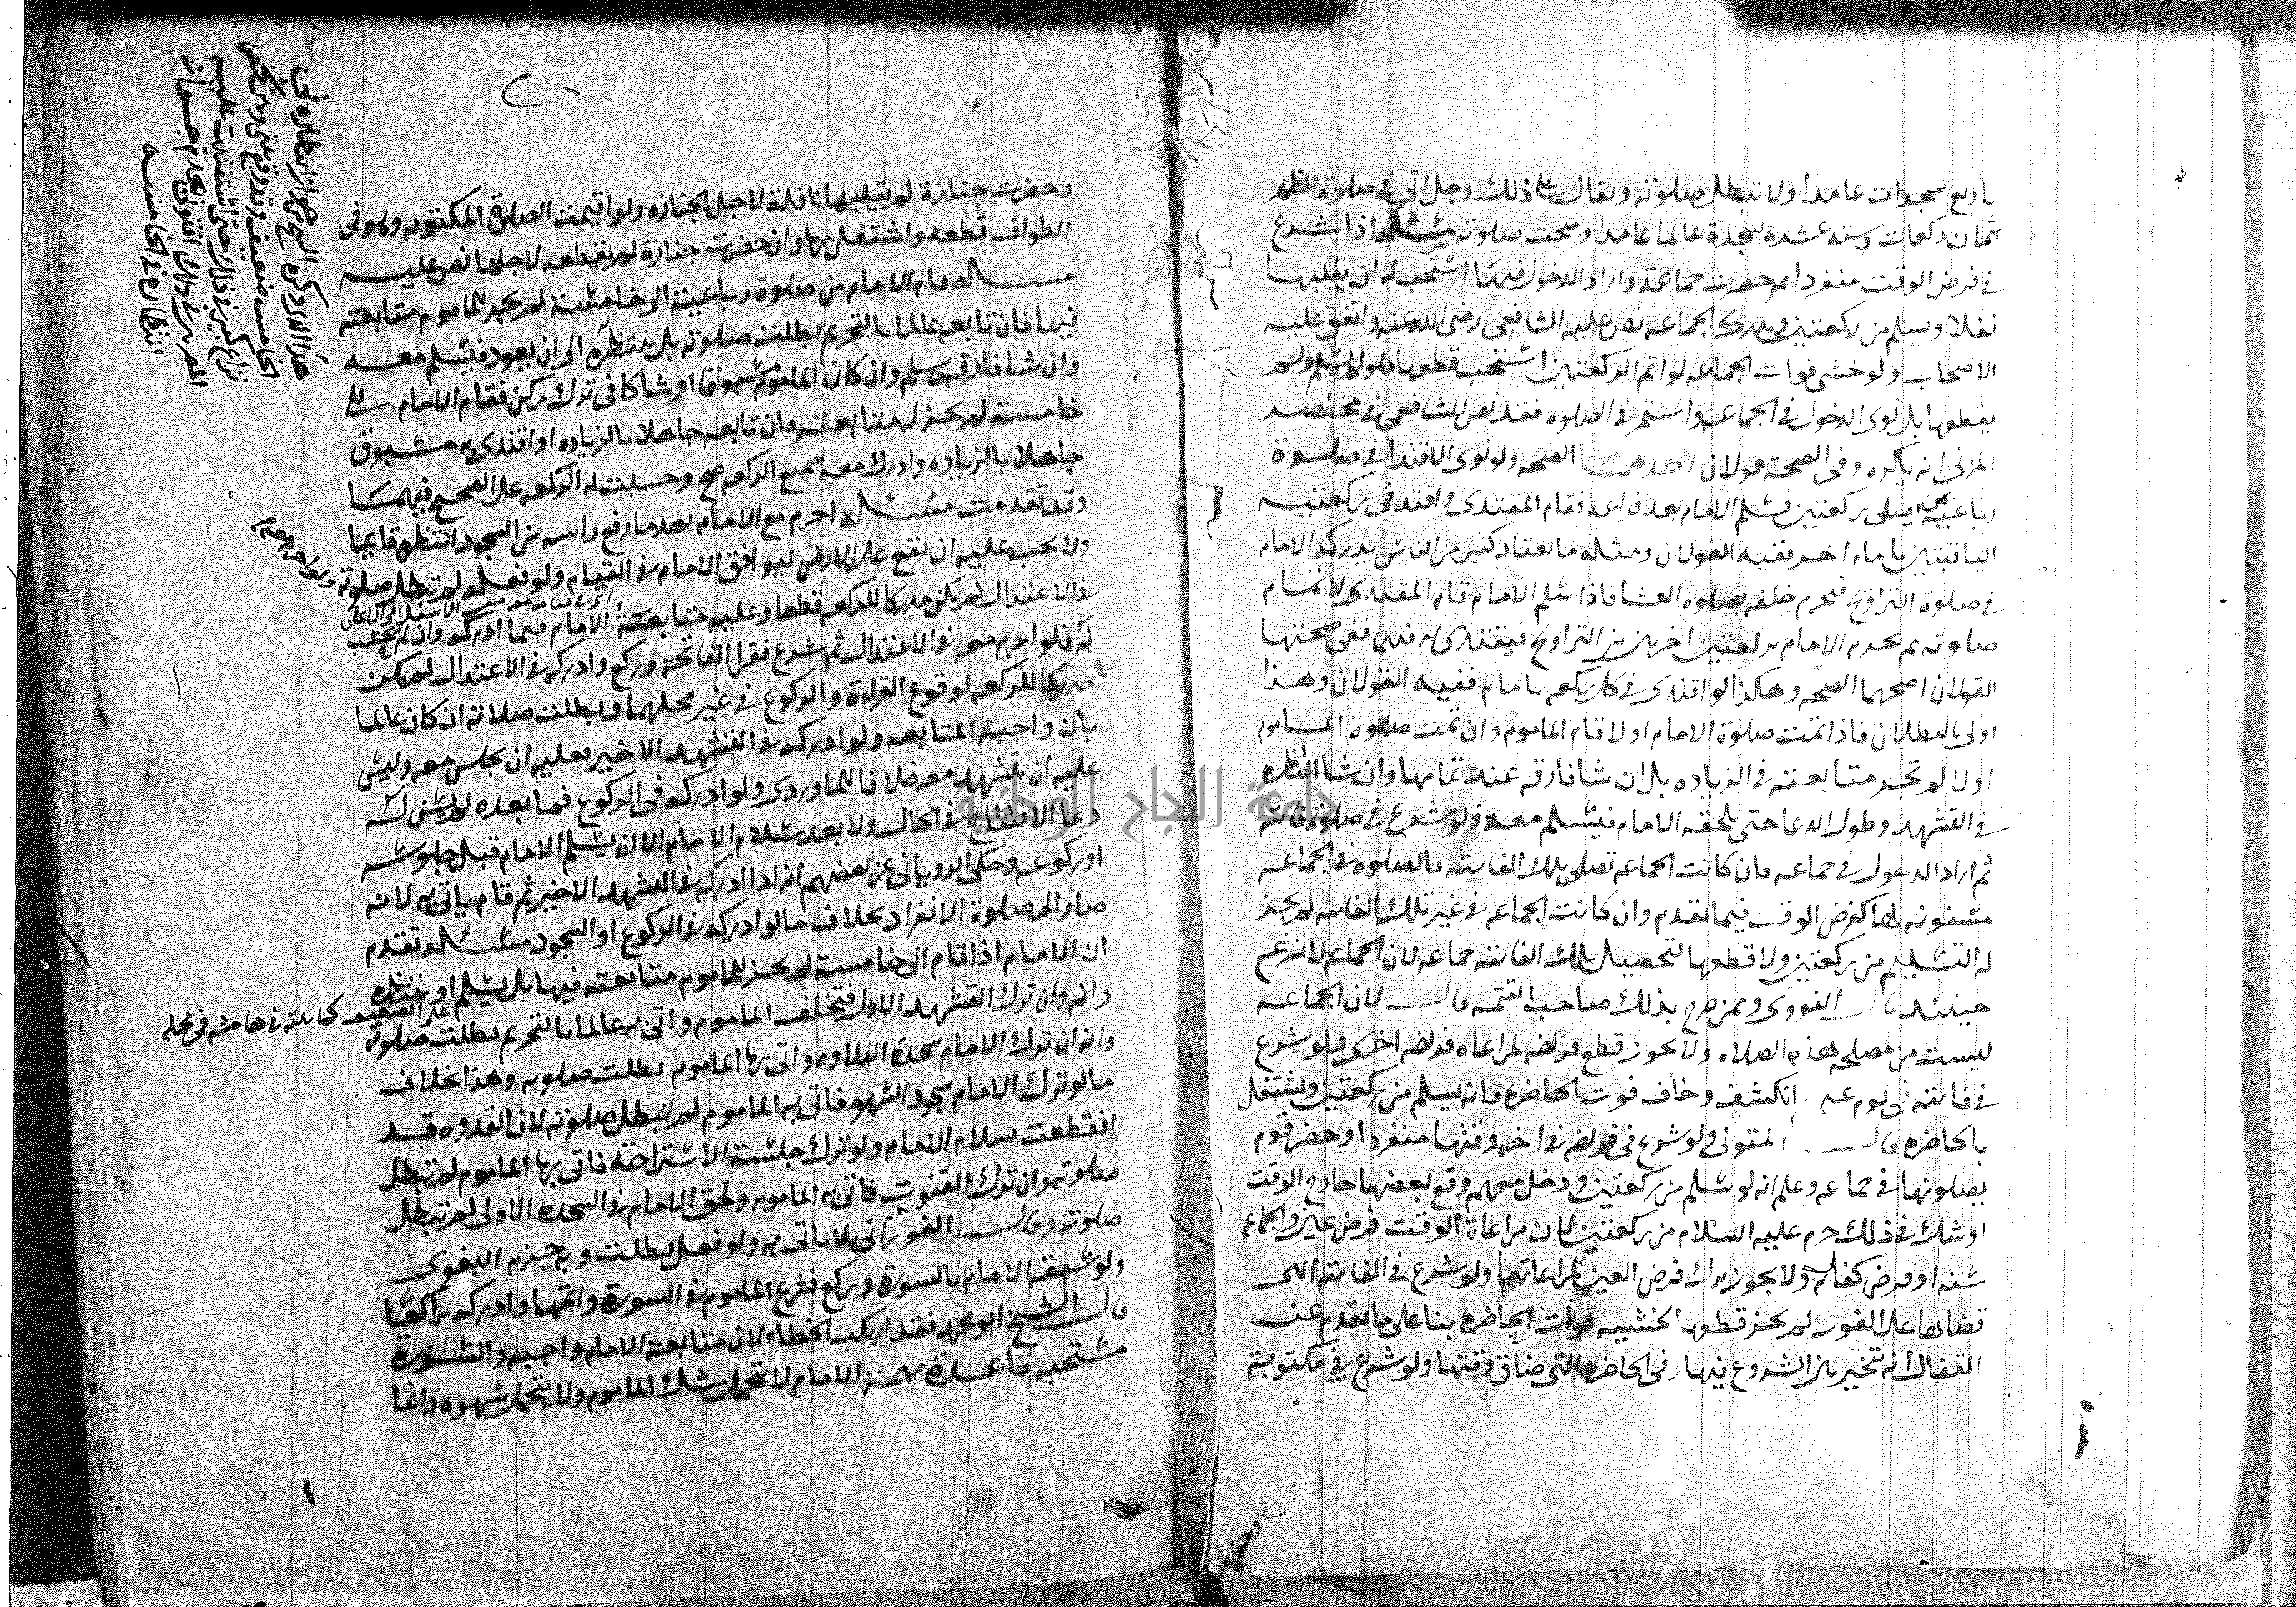 باربع سجدات عامدا ولا تبطل صلوته ويقال على ذلك رجل اتى في صلوة الظهر
ثمان ركعات وستة عشره سجدة عالما عامدا وصحت صلوته مسئله اذا شرع
في فرض الوقت منفردا ثم حضرت جماعة واراد الدخول فيها استحب له ان يقلبها
نفلا ويسلم من ركعتين ويدرك الجماعه نص عليه الشافعي رضي الله عنه واتفق عليه
الاصحاب ولو خشى فوات الجماعه لو اتم الركعتين استحب قطعها فلو لم يسلم ولم
يقطعها بل نوى الدخول في الجماعه واستمر في الصلوه فقد نص الشافعي في مختصر
المزني انه يكره وفي الصحة قولان احدهما الصحه ولو نوى الاقتدا في صلوة
رباعية من صلى ركعتين فسلم الامام بعد فراغه فقام المقتدى واقتدى في ركعتيه
الباقيتين بامام اخر ففيه القولان ومثله ما يعتاد كثير من الناس يدرك الامام
في صلوة التراويح فيحرم خلفه بصلوه العشا فاذا سلم الامام قام المقتدى لاتمام
صلوته ثم يحرم الامام بركعتين اخريين من التراويح فيقتدى به فيهما ففي صحتها
القولان اصحهما الصحه وهكذا لو اقتدى في كل ركعه بامام ففيه القولان وهذا
اولى بالبطلان فاذا تمت صلوة الامام اولا قام الماموم وان تمت صلوة الماموم
اولا لم تجز متابعته في الزياده بل ان شا فارقه عند تمامها وان شا انتظره
في التشهد وطول الدعا حتى يلحقه الامام فيسلم معه ولو شرع في صلوة فائتة
ثم اراد الدخول في جماعه فان كانت الجماعه تصلى تلك الفائته فالصلوه في الجماعه
مسنونه لها كفرض الوقت فيما تقدم وان كانت الجماعه في غير تلك الفائته لم يجز
له التسليم من ركعتين ولا قطعها لتحصيل تلك الفائته جماعه لان الجماعه لا تشرع
حينئذ قال النووى وممن صرح بذلك صاحب التتمه قال لان الجماعه
ليست من مصلحه هذه الصلاه ولا يجوز قطع فريضه لمراعاه فريضه اخرى ولو شرع
في فائته في يوم غيم انكشف وخاف فوت الحاضره فانه يسلم من ركعتين ويشتغل
بالحاضره قال المتولى ولو شرع في فريضه في اخر وقتها منفردا وحضر قوم
يصلونها في جماعه وعلم انه لو سلم من ركعتين ودخل معهم وقع بعضها خارج الوقت
او شك في ذلك حرم عليه السلام من ركعتين لان مراعاة الوقت فرض عين والجماعه
سنه او فرض كفايه ولا يجوز ترك فرض العين لمراعاتها ولو شرع في الفائته التى
قضاؤها على الفور لم يجز قطعها لخشيه فوات الحاضره بنا على ما تقدم عن
القفال انه يتخير بين الشروع فيها وفي الحاضره التى ضاق وقتها ولو شرع في مكتوبة
وحضرت
وحضرت جنازة لم يقلبها نافلة لاجل الجنازه ولو اقيمت الصلوة المكتوبه وهو في
الطواف قطعه واشتغل بها وان حضرت جنازة لم يقطعه لاجلها نص عليه
مساله قام الامام من صلوة رباعية الى خامسة لم يجز للماموم متابعته
فيها فان تابعه عالما بالتحريم بطلت صلوته بل ينتظره الى ان يعود فيسلم معه
وان شا فارقه وسلم وان كان الماموم مسبوقا او شاكا في ترك ركن فقام الامام الى
خامسة لم يجز له متابعته فان تابعه جاهلا بالزياده او اقتدى به مسبوق
جاهلا بالزياده وادرك معه جميع الركعه صح وحسبت له الركعه على الصحيح فيهما
وقد تقدمت مسئله احرم مع الامام بعد ما رفع راسه من السجود انتظره قايما
ولا يجب عليه ان يقع على الارض ليوافق الامام في القيام ولو فعله لم تبطل صلوته
في الاعتدال لم يكن مدركا للركعه قطعا وعليه متابعة الامام فيما ادركه وان لم يحسب
له فلو احرم معه في الاعتدال ثم شرع فقرا الفاتحة وركع وادركه في الاعتدال لم يكن
مدركا للركعه لوقوع القراءة والركوع في غير محلهما وبطلت صلاته ان كان عالما
بان واجبه المتابعه ولو ادركه في التشهد الاخير فعليه ان يجلس معه وليس
عليه ان يتشهد معه خلافا للماوردى ولو ادركه في الركوع فما بعده لم يسن له
دعا الافتتاح في الحال ولا بعد سلام الامام الا ان يسلم الامام قبل جلوسه
او ركوعه وحكى الروياني عن بعضهم انه اذا ادركه في التشهد الاخير ثم قام ياتى به لانه
صار الى صلوة الانفراد بخلاف ما لو ادركه في الركوع او السجود مسئله تقدم
ان الامام اذا قام الى خامسة لم يجز للماموم متابعته فيها بل يسلم او ينتظره
على الضعيف كما بينته في هامشه في محله
وانه وان ترك التشهد الاول فتخلف الماموم واتى به عالما بالتحريم بطلت صلوته
وانه ان ترك الامام سجدة التلاوه واتى بها الماموم بطلت صلوته وهذا بخلاف
ما لو ترك الامام سجود السهو فاتى به الماموم لم تبطل صلوته لان القدوه قد
انقطعت بسلام الامام ولو ترك جلسة الاستراحة فاتى بها الماموم لم تبطل
صلوته وان ترك القنوت فاتى به الماموم ولحق الامام في السجدة الاولى لم تبطل
صلوته وقال الفوراني لا ياتى به ولو فعل بطلت وبه جزم البغوى
ولو سبقه الامام بالسورة وركع فشرع الماموم في السورة واتمها وادركه راكعا
قال الشيخ ابو محمد فقد ارتكب الخطاء لان متابعة الامام واجبه والسورة
مستحبه قاعدة مهمة الامام لا يتحمل شك الماموم ولا يتحمل سهوه وانما